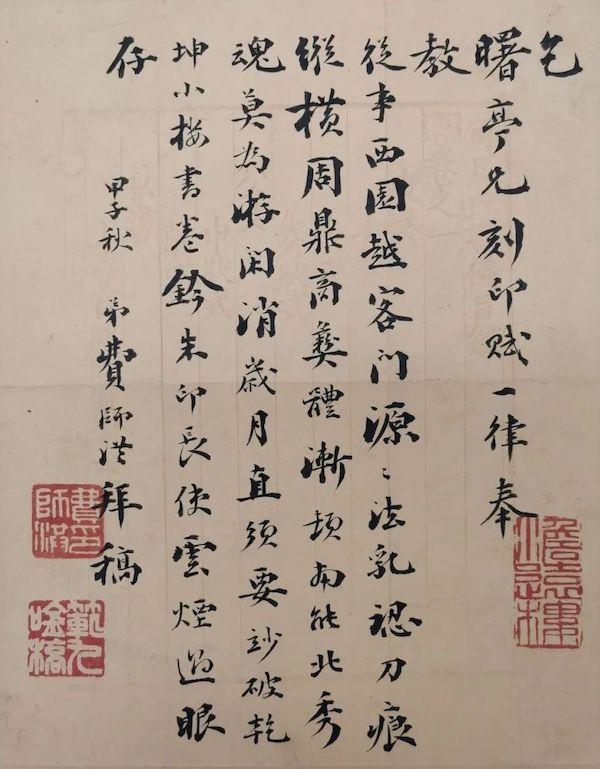 乞
曙亭兄刻印賦一律奉
教
從事西園越客門源〻法乳認刀痕
縱橫周鼎商彝體漸頓南能北秀
魂莫為游閑消歲月直須要玅破乾
坤小樓書卷鈐朱印長使雲煙過眼
存
甲子秋 弟費師洪拜稿
費印
師洪
範九
唫稿